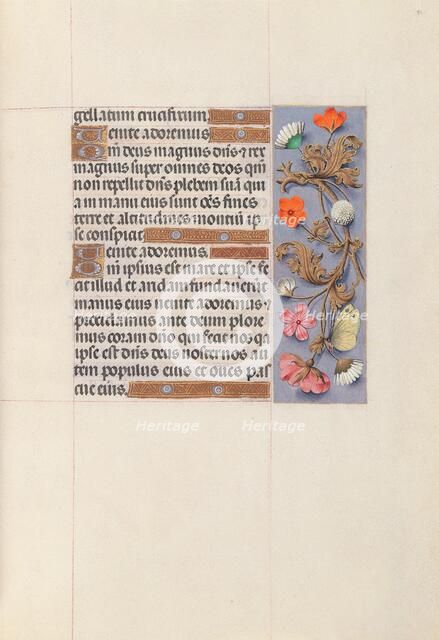 gellatum crucifixum.
Uenite adoremus
Qm̄ deus magnus dn̄s ⁊ rex
magnus super omnes deos qui
non repellit dn̄s plebem suā qui
a in manu eius sunt oēs fines
terre et altitudines montiū ip
se conspicit
Uenite adoremus.
Qm̄ ipsius est mare et ipse fe
cit illud et aridam fundauerūt
manus eius uenite adoremus ⁊
procidamus ante deum plore
mus coram dn̄o qui fecit nos qa
ipse est dn̄s deus noster nos au
tem populus eius et oues pas
cue eius.
heritage images
Heritage
Heritage